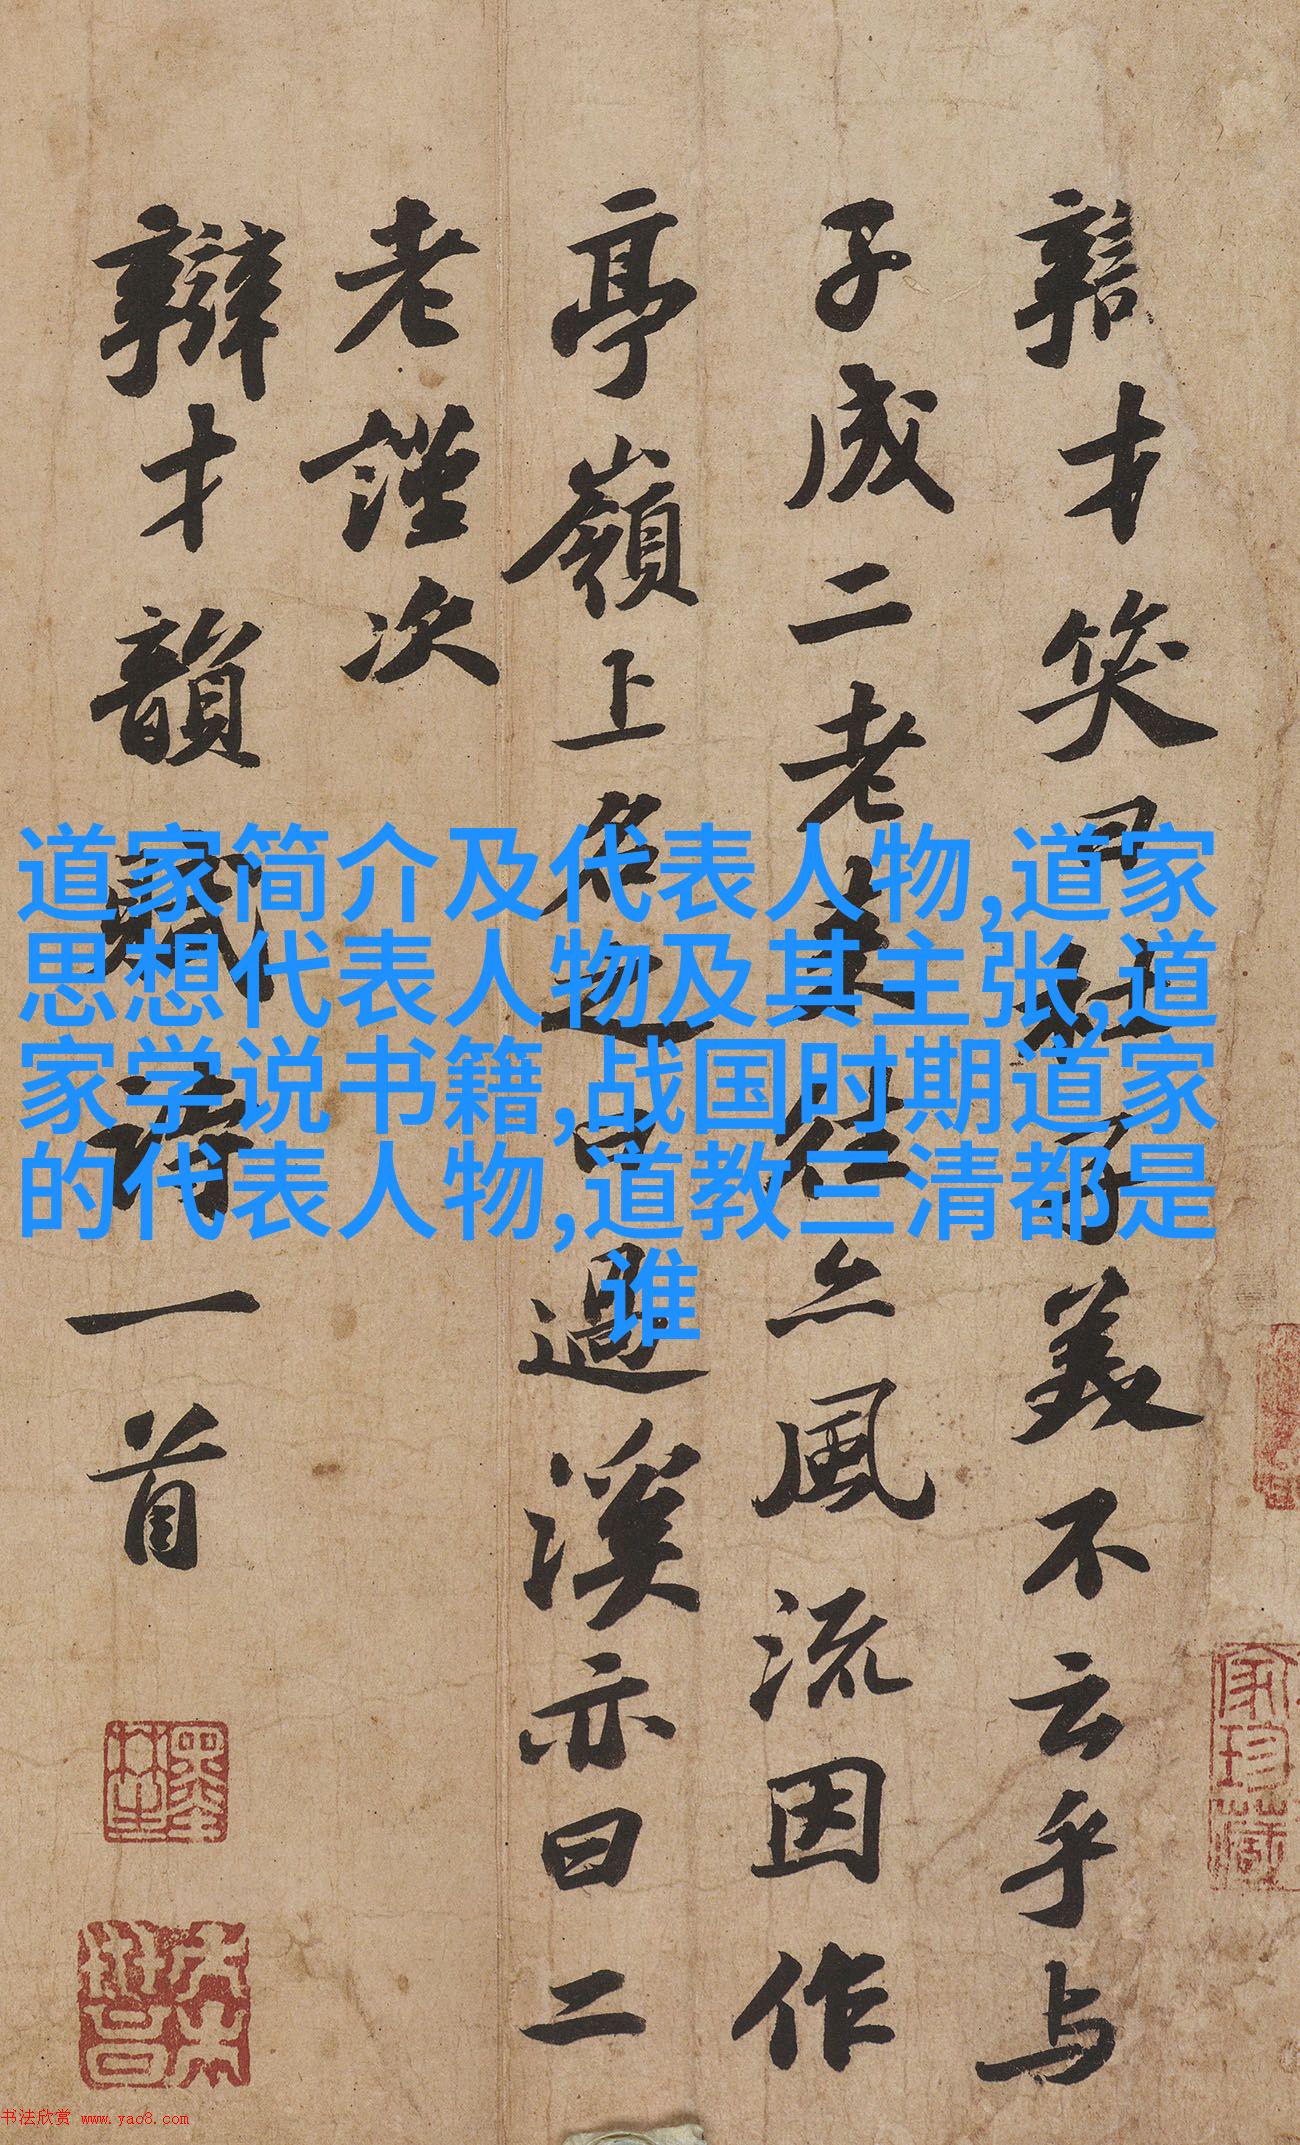 辯才笑曰杜子美不云乎与
子成二老来往亦風流因作
亭嶺上名之曰過溪亦曰二
老謹次
辯才韻賦詩一首
道家简介及代表人物,道家
思想代表人物及其主张,道
家学说书籍,战国时期道家
的代表人物,道教三清都是
谁
家珍藏
书法欣赏 www.yac8.com